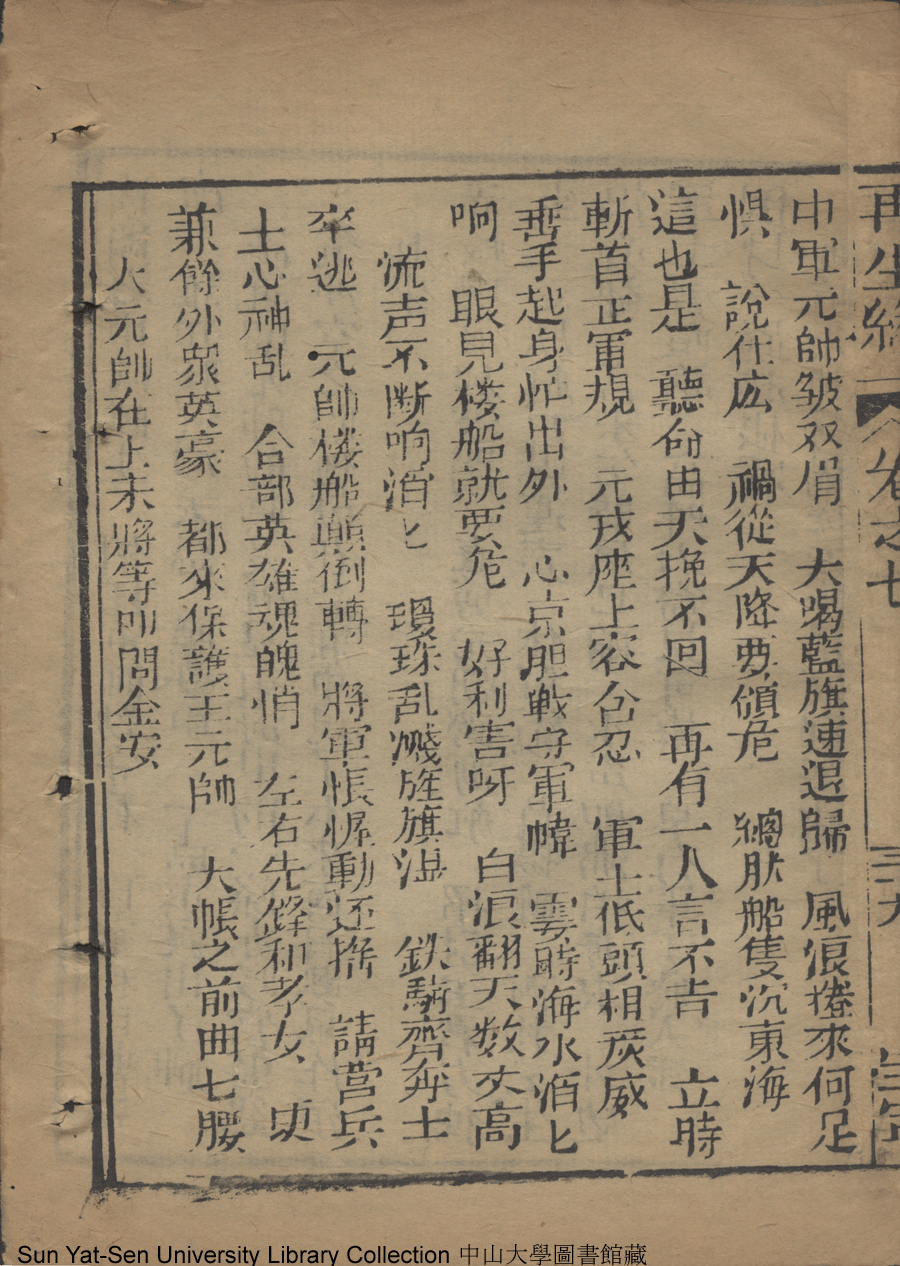 再生緣 卷之七
中軍元帥皱双眉 大喝藍旗速退歸 風浪捲來何足
惧 說什広 禍從天降要傾危 總肰船隻沉東海
這也是 聽命由天挽不回 再有一人言不吉 立時
斬首正軍規 元戎座上容台忍 軍士低頭相威
垂手起身忙出外 心京胆戰守軍幃 霎時海水滔匕
响 眼見楼船就要危 好利害呀 白浪翻天数丈高
流声不断响滔匕 瓊珠乱溅旌旗湿 鉄騎齊奔士
卒逃 元帥楼船顛倒轉 將軍帳幄動还揺 請营兵
士心神乱 合部英雄魂魄悄 左右先鋒和孝女
兼餘外衆英豪 都來保護王元帥 大帳之前曲七腰
大元帥在上末將等叩問金安
Sun Yat-Sen University Library Collection 中山大學圖書館藏